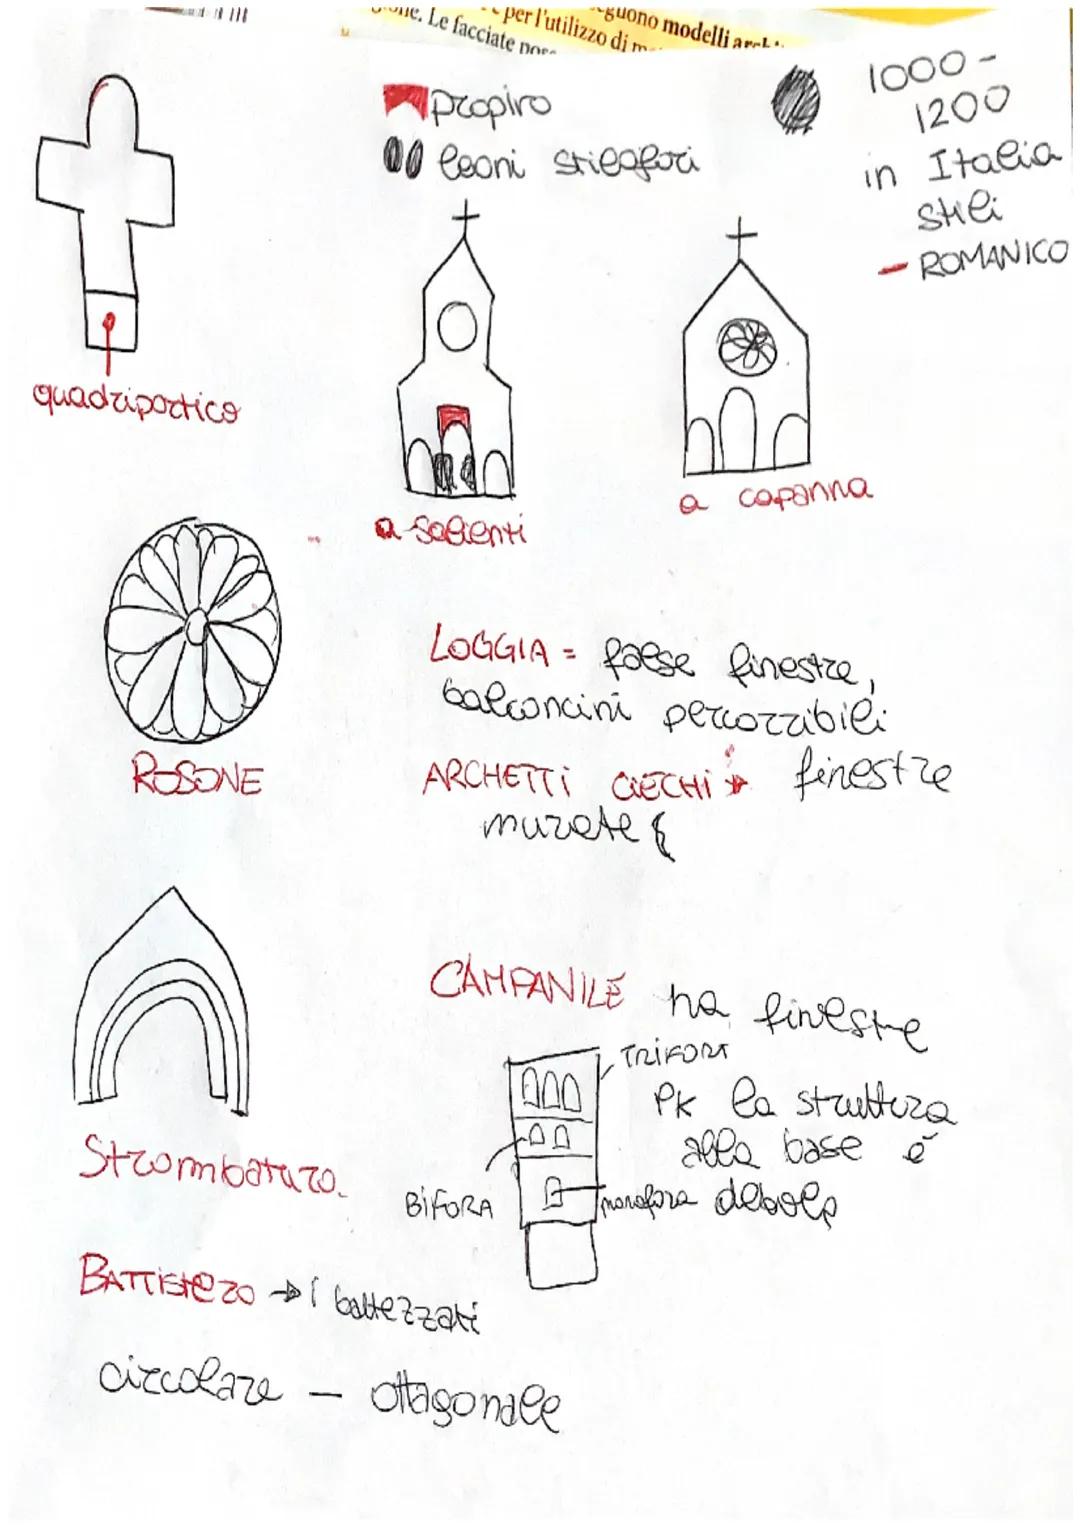 eguono modelli
e per l'utilizzo di
Le facciate
propiro
leoni stilofori
1000 -
1200
in Italia
stili
- ROMANICO
quadriportico
a salienti
a capanna
LOGGIA = false finestre,
balconcini percorribili
ROSONE
ARCHETTI CIECHI → finestre
murate
CAMPANILE ha finestre
TRIFORA
PK la struttura
alla base é
debole
BIFORA
monofora
Strombatura
BATTISTERO → i battezzati
circolare - ottagonale